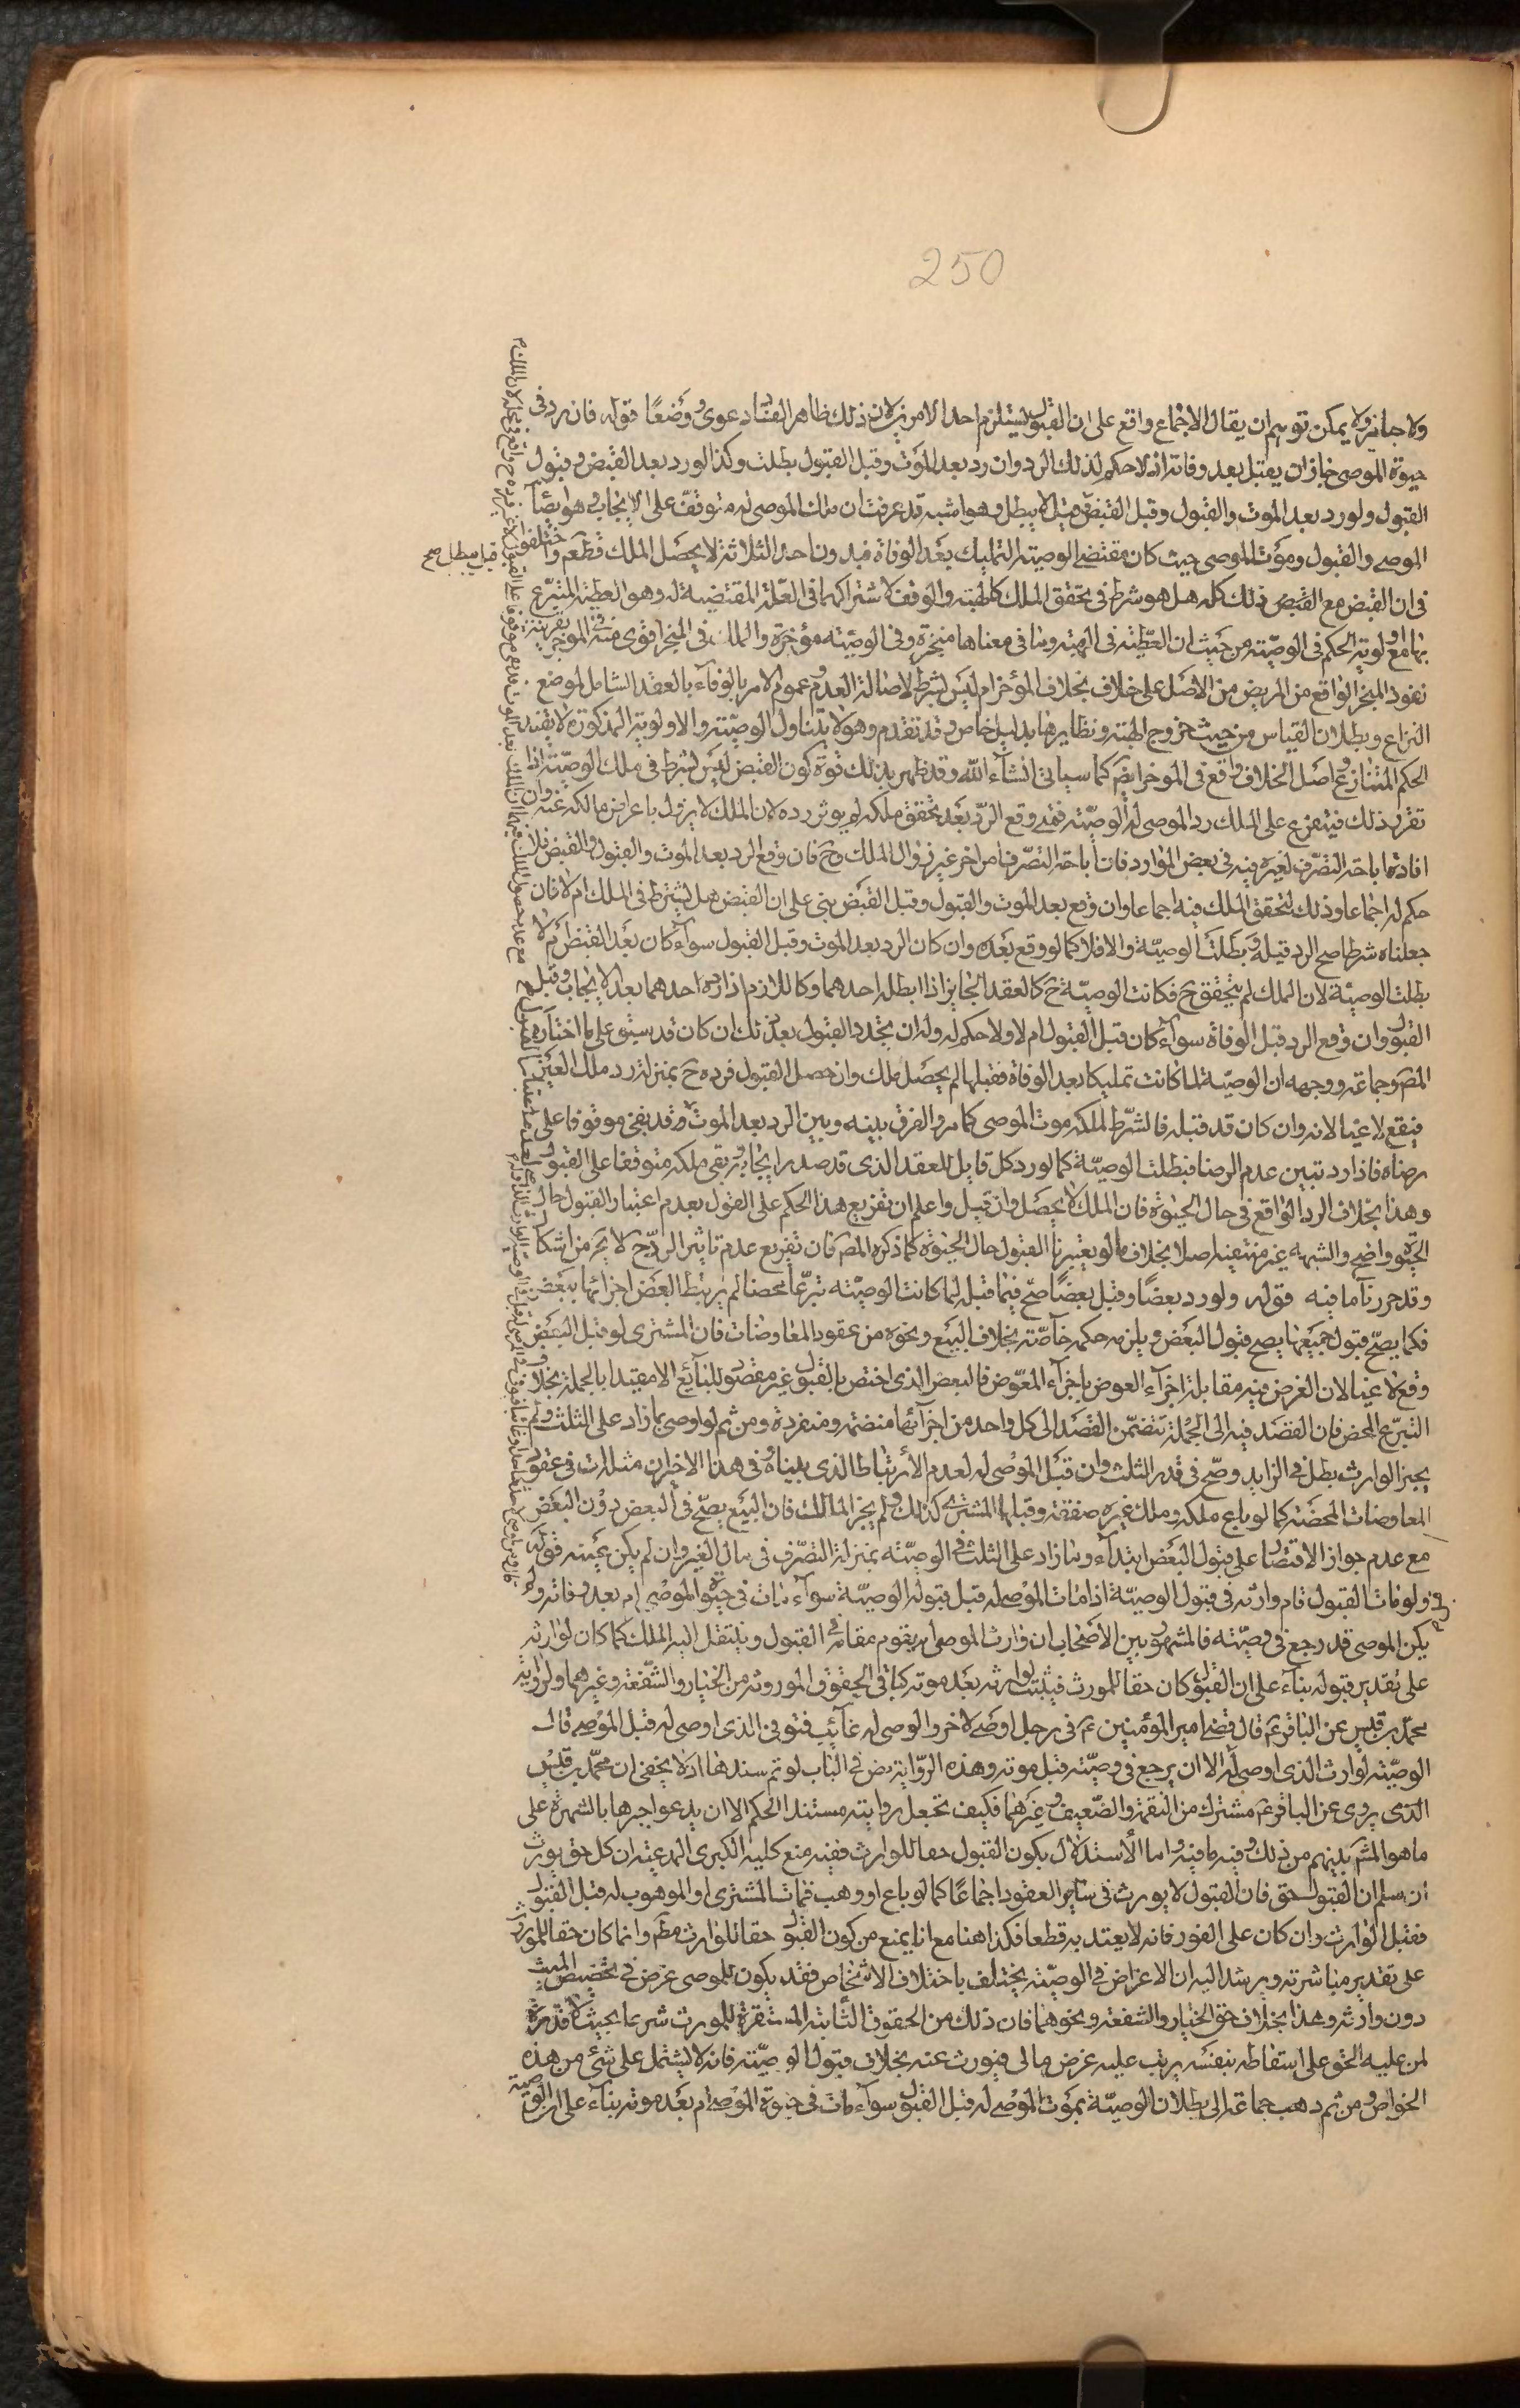 250
ولا جائز ولا يمكن توهم ان يقال الاجماع واقع على ان القبول يستلزم احد الامرين لان ذلك ظاهر الفساد دعوى ووضعا قوله فان رد في
حيوة الموصى جاز ان يقبل بعد وفاته اذ لا حكم لذلك الرد وان رد بعد الموت وقبل القبول بطلت وكذا لو رد بعد القبض وقبول
القبول ولو رد بعد الموت والقبول وقبل القبض قيل لا يبطل وهو اشبه قد عرفت ان ملك الموصى له متوقف على الايجاب وهو ايضا
الموصى والقبول وموت الموصى حيث كان مقتضى الوصية التمليك بعد الوفاة فبدون احد الثلاثة لا يحصل الملك قطعا واختلفوا
قيل يبطل صح
في ان القبض مع القبض ذلك كله هل هو شرط في تحقق الملك كالهبة والوقف لاشتراكهما في العلة المقتضية له وهو العطية المتبرع
بها مع اولوية الحكم في الوصية من حيث ان العطية في الهبة وما في معناها منجزة وفي الوصية مؤخرة والملك في المنجز اقوى منه في المؤخر بقرينة
نفوذ المنجز الواقع من المريض من الاصل على خلاف بخلاف المؤخر ام ليس بشرط لاصالة العدم وعموم الامر بالوفاء بالعقد الشامل لموضع
النزاع وبطلان القياس من حيث خروج الهبة ونظايرها بدليل خاص وقد تقدم وهو لا يتناول الوصية والاولوية المذكورة لا تفيد
الحكم المتنازع واصل الخلاف واقع في المؤخر ايضا كما سيأتي انشاء الله وقد ظهر بذلك قوة كون القبض ليس بشرط في ملك الوصية اذا
تقرر ذلك فيتفرع على الملك رد الموصى له الوصية فمتى وقع الرد بعد تحقق ملكه لم يوثر رده لان الملك لا يزول باعراض مالكه عنه وان
افاد اباحة التصرف لغيره فيه في بعض الموارد فان اباحة التصرف امر اخر غير زوال الملك وح فان وقع الرد بعد الموت والقبول والقبض فلا
حكم له اجماعا وذلك لتحقق الملك فيه اجماعا وان وقع بعد الموت والقبول وقبل القبض بني على ان القبض هل يشترط في الملك ام لا فان
جعلناه شرطا صح الرد قبله وبطلت الوصية والا فلا كما لو وقع بعده وان كان الرد بعد الموت وقبل القبول سواء كان بعد القبض ام لا
بطلت الوصية لان الملك لم يتحقق ح فكانت الوصية ح كالعقد الجايز اذا ابطله احدهما وكاللازم اذا رده احدهما بعد الايجاب وقبل
القبول وان وقع الرد قبل الوفاة سواء كان قبل القبول ام لا ولا حكم له وله ان يجدد القبول بعد ذلك ان كان قد سبق على ما اختاره
المص وجماعة ووجهه ان الوصية لما كانت تمليكا بعد الوفاة فقبلها لم يحصل ملك وان حصل القبول فرده ح بمنزلة رد ملك الغير
فيقع لاغيا لانه وان كان قد قبله فالشرط لملكه موت الموصى كما مر والفرق بينه وبين الرد بعد الموت وقد بقي موقوفا على
رضاه فاذا رد تبين عدم الرضا فبطلت الوصية كما لو رد كل قابل للعقد الذي قد صدر ايجابه وبقي ملكه متوقفا على القبول
وهذا بخلاف الرد الواقع في حال الحيوة فان الملك لا يحصل وان قبل واعلم ان تفريع هذا الحكم على القول بعدم اعتبار القبول حال
الحيوة واضح والشبهة غير منتفية اصلا بخلاف ما لو يعتبرنا القبول حال الحيوة كما ذكره المص فان تفريع عدم تاثير الرد ح لا يخ من اشكال
وقد حررنا ما فيه قوله ولو رد بعضا وقبل بعضا صح فيما قبله لما كانت الوصية تبرعا محضا لم يرتبط البعض اجزائها ببعض
فكما يصح قبول جميعها يصح قبول البعض ويلزمه حكمه خاصة بخلاف البيع ونحوه من عقود المعاوضات فان المشترى لو قبل البعض
وقع لاغيا لان الغرض فيه مقابلة اجزاء العوض باجزاء المعوض فالبعض الذي اختص بالقبول غير مقصود للبائع الا مقيدا بالجملة بخلاف
التبرع المحض فان القصد فيه الى الجملة يتضمن القصد الى كل واحد من اجزائها منضمة ومنفردة ومن ثم لو اوصى بما زاد على الثلث ولم
يجز الوارث بطل في الزايد وصح في قدر الثلث وان قبل الموصى له لعدم الارتباط الذي بيناه وفي هذا الاخير ان مثله ات في عقود
المعاوضات المحضة كما لو باع ملكه وملك غيره صفقة وقبلها المشترى كذلك ولم يجز المالك فان البيع يصح في البعض دون البعض
مع عدم جواز الاقتصار على قبول البعض ابتداء وما زاد على الثلث في الوصية بمنزلة التصرف في مال الغير وان لم يكن بحيثه قوله
ولو فات القبول قام وارثه في قبول الوصية اذا مات الموصى له قبل قبوله الوصية سواء مات في حيوة الموصى ام بعد وفاته ولم
يكن الموصى قد رجع في وصيته فالمشهور بين الاصحاب ان وارث الموصى له يقوم مقامه في القبول وينتقل اليه الملك كما كان لوارثه
على تقدير قبوله بناء على ان القبول كان حقا للمورث فيثبت لوارثه بعد موته كباقي الحقوق الموروثة من الخيار والشفعة وغيرهما ولرواية
محمد بن قيس عن الباقر ع قال قضى امير المؤمنين ع في رجل اوصى لاخر والموصى له غائب فتوفي الذي اوصى له قبل الموصى قال
الوصية لوارث الذي اوصى له الا ان يرجع في وصيته قبل موته وهذه الرواية نص في الباب لو تم سندها اذ لا يخفى ان محمد بن قيس
الذي يروى عن الباقر ع مشترك من الثقة والضعيف وغيرهما فكيف تجعل روايته مستند الحكم الا ان يدعوا جبرها بالشهرة على
ما هو المشهر بينهم من ذلك وفيه ما فيه واما الاستدلال بكون القبول حقا للوارث ففيه منع كلية الكبرى المدعية ان كل حق يورث
ان سلم ان القبول حق فان القبول لا يورث في سائر العقود اجماعا كما لو باع او وهب فمات المشترى او الموهوب له قبل القبول
فقبل الوارث وان كان على الفور فانه لا يعتد به قطعا فكذا هنا مع انا نمنع من كون القبول حقا للوارث مطم وانما كان حقا للمورث
على تقدير مباشرته ويرشد اليه ان الاغراض في الوصية يختلف باختلاف الاشخاص فقد يكون للموصى غرض في تخصيص الميت
دون وارثه وهذا بخلاف حق الخيار والشفعة ونحوهما فان ذلك من الحقوق الثابتة المستقرة للمورث شرعا بحيث لا قدرة
لمن عليه الحق على اسقاطه بنفسه يرتب عليه غرض مالى فيورث عنه بخلاف قبول الوصية فانه لا يشتمل على شئ من هذه
الخواص ومن ثم ذهب جماعة الى بطلان الوصية بموت الموصى له قبل القبول سواء مات في حيوة الموصى ام بعد موته بناء على ان الوصية